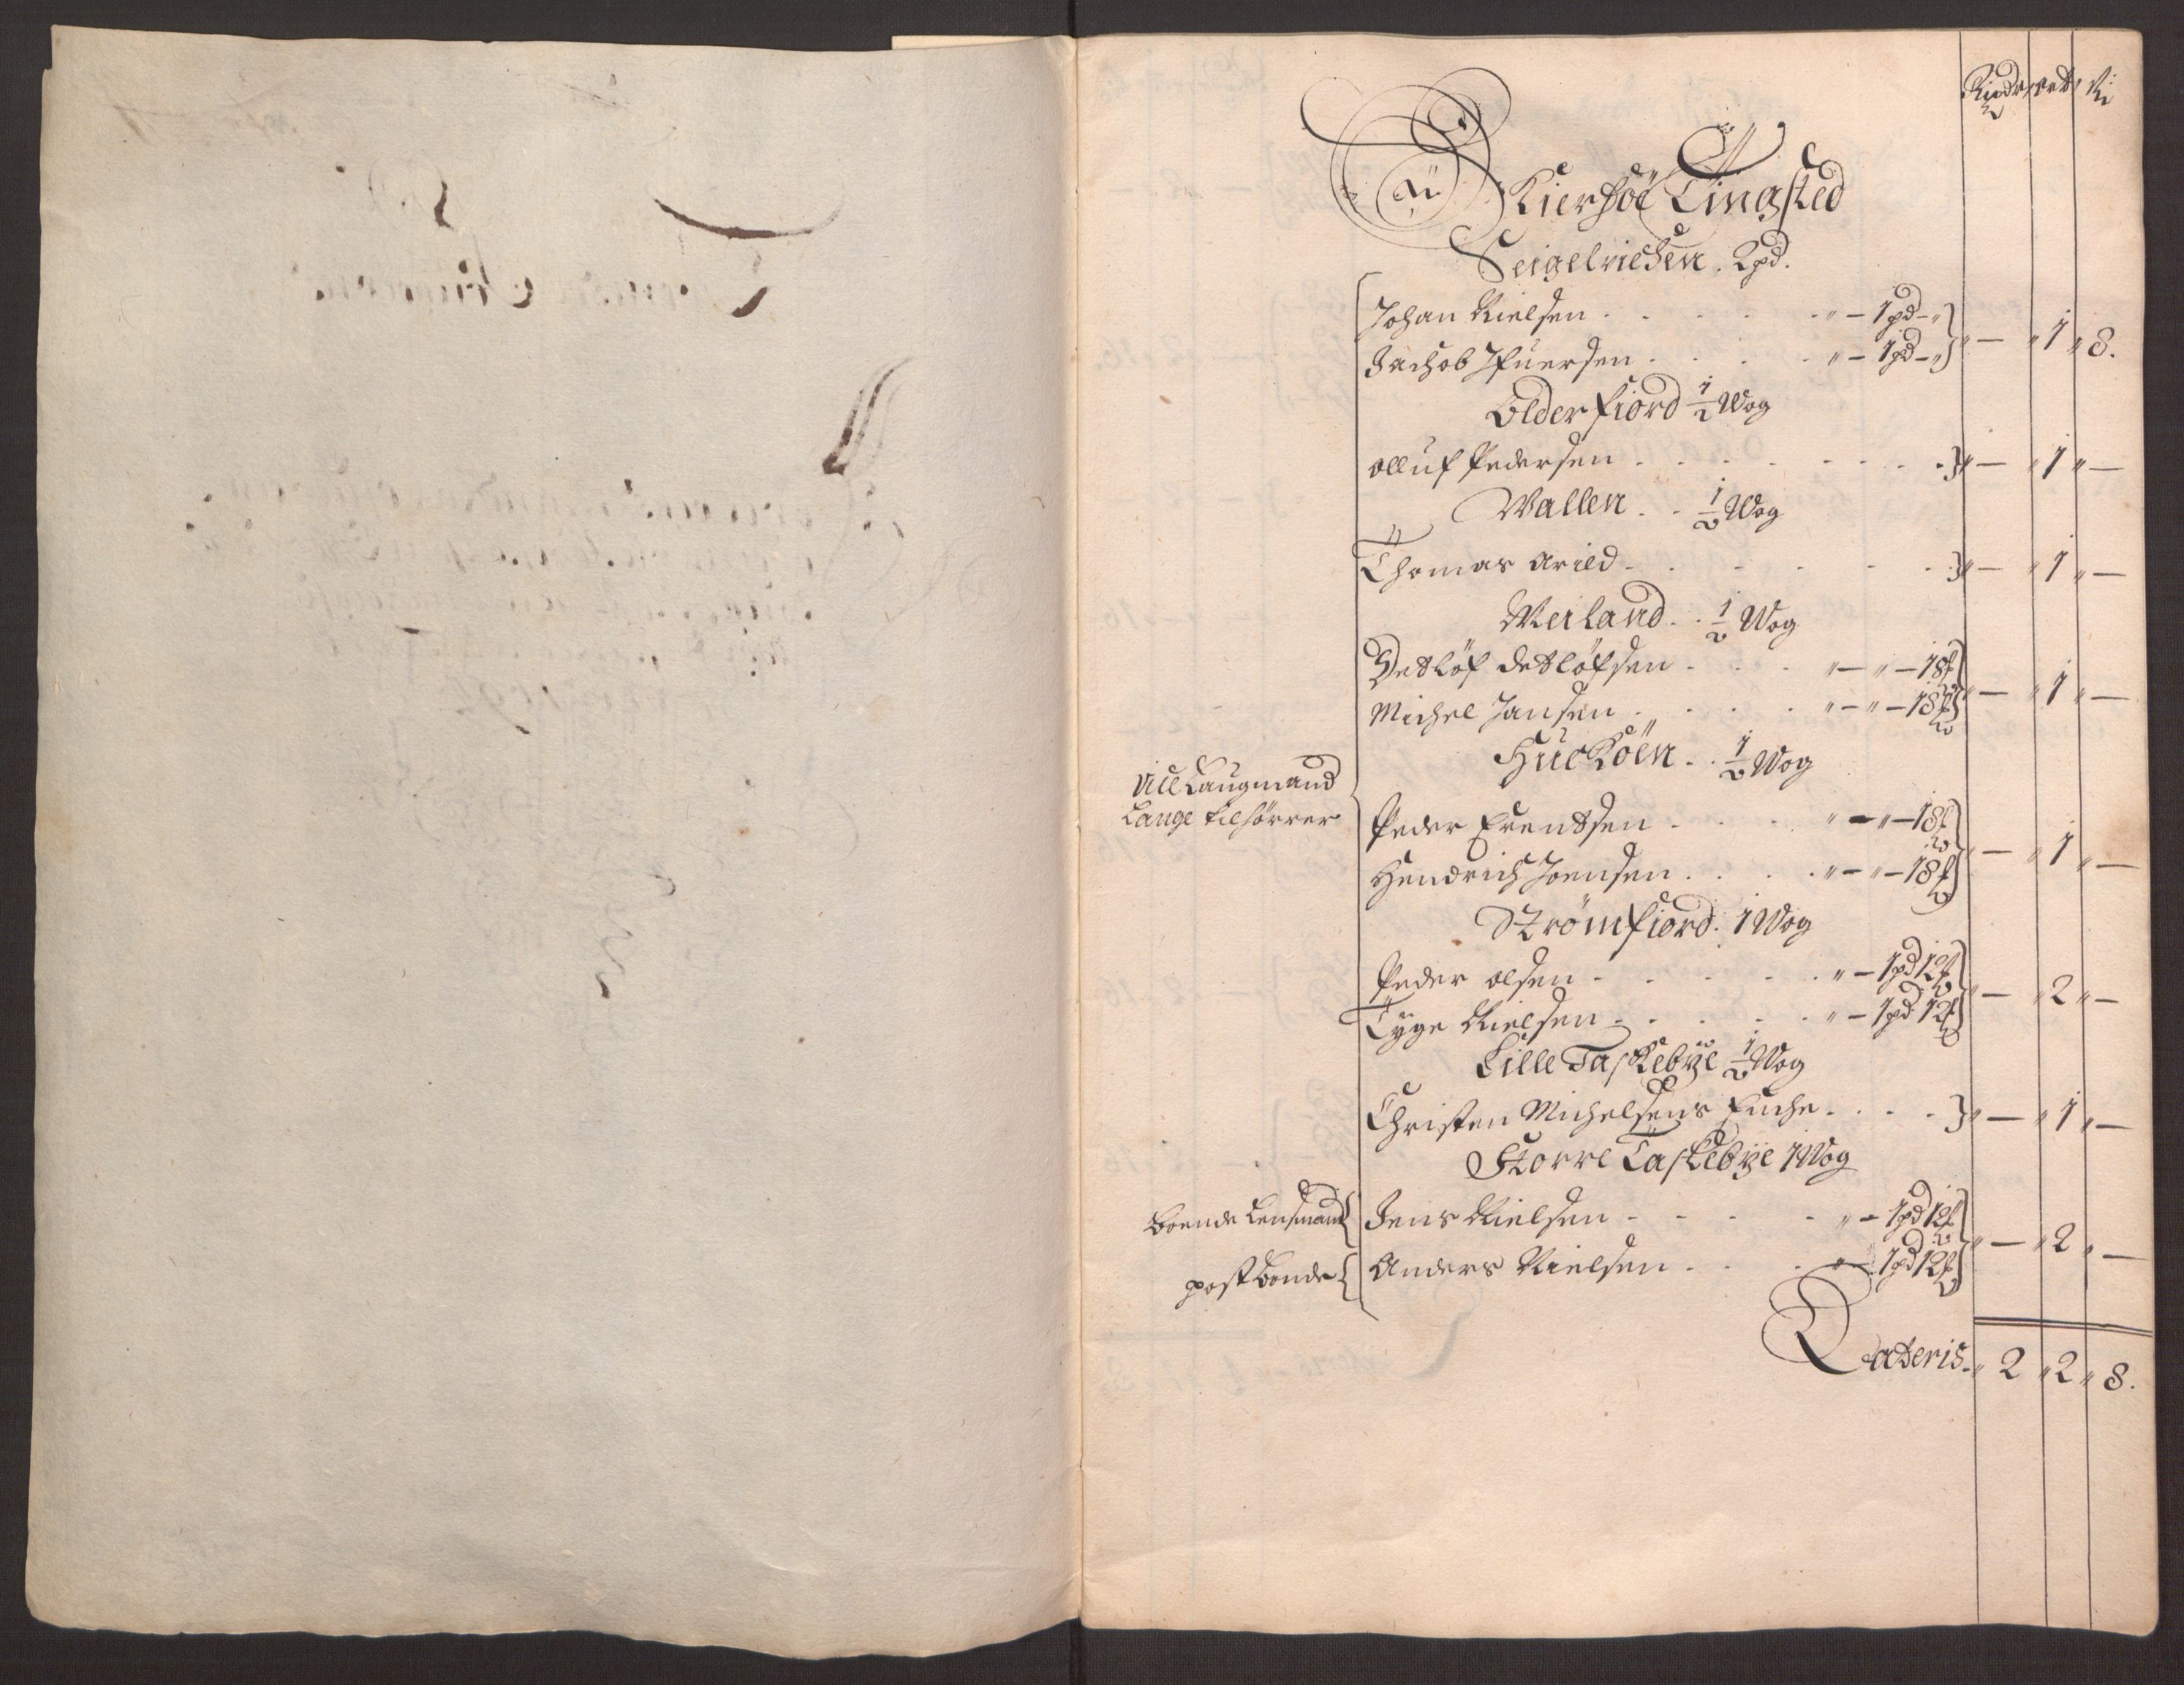 Rixdr ort ß
Kierhöe Tingsted
Seigelviigen. 2pd.
Johan Nielsen . . . . " – 1pd – "
Jachob Ifuersen . . . " – 1pd – " } " – " 1 " 8.
Olderfiord ½ Wog
Olluf Pedersen . . . . . . } " – " 1 " –
Wallen . . ½ Wog
Thomas Arild . . . . . } " – " 1 " –
Meiland . . ½ Wog
Detlöf Detlöfsen . . . " – " – 18 ℔
Michel Jansen . . . . " – " – 18 ℔ } " – " 1 " –
Hucköen . . ½ Wog
All Laugmand
Lange tilhörrer
Peder Erentsen . . . " – " – 18 ℔
Hendrich Joensen . . . " – " – 18 ℔ } " – " 1 " –
Strömfiord. 1 Wog
Peder Olsen . . . . . " – 1pd 12 ℔
Tyge Nielsen . . . . . " – 1pd 12 ℔ } " – " 2 " –
Lille Taskebÿe ½ Wog
Christen Michelsens Enche . . . . } " – " 1 " –
Storre Taskebÿe 1 Wog
Boende Lensmand { Jens Nielsen . . . . " – 1pd 12 ℔
postbonde { Anders Nielsen . . . " – 1pd 12 ℔ } " – " 2 " –
Lateris . " 2 " 2 " 8.